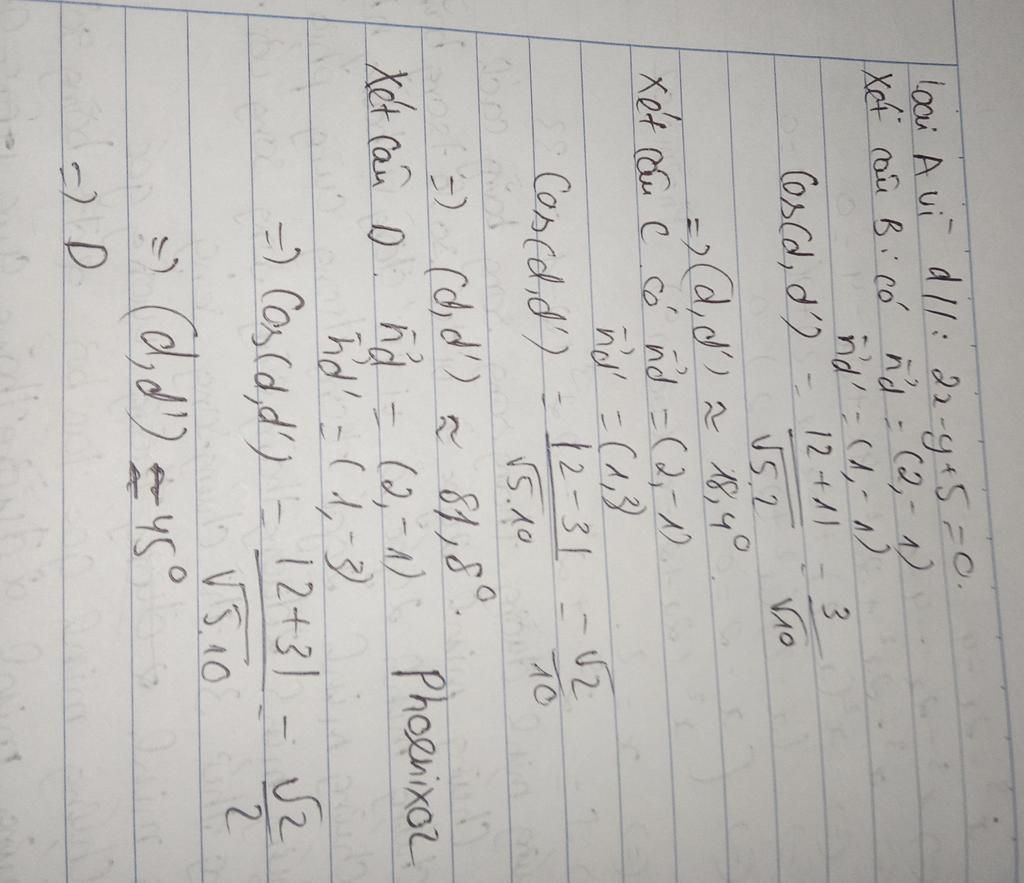 Loại A vì d//: 2x-y+5=0.
Xét câu B: có n⃗d = (2,-1)
n⃗d' = (1,-1)
Cos(d,d') = |2+1| / √5.2 = 3 / √10
=> (d,d') ≈ 18,4°
Xét câu C có n⃗d = (2,-1)
n⃗d' = (1,3)
Cos(d,d') = |2-3| / √5.10 = √2 / 10
=> (d,d') ≈ 81,8°.
Xét câu D. n⃗d = (2,-1) Phoenixoz
n⃗d' = (1,-3)
=> Cos(d,d') = |2+3| / √5.10 = √2 / 2
=> (d,d') = 45°
=> D